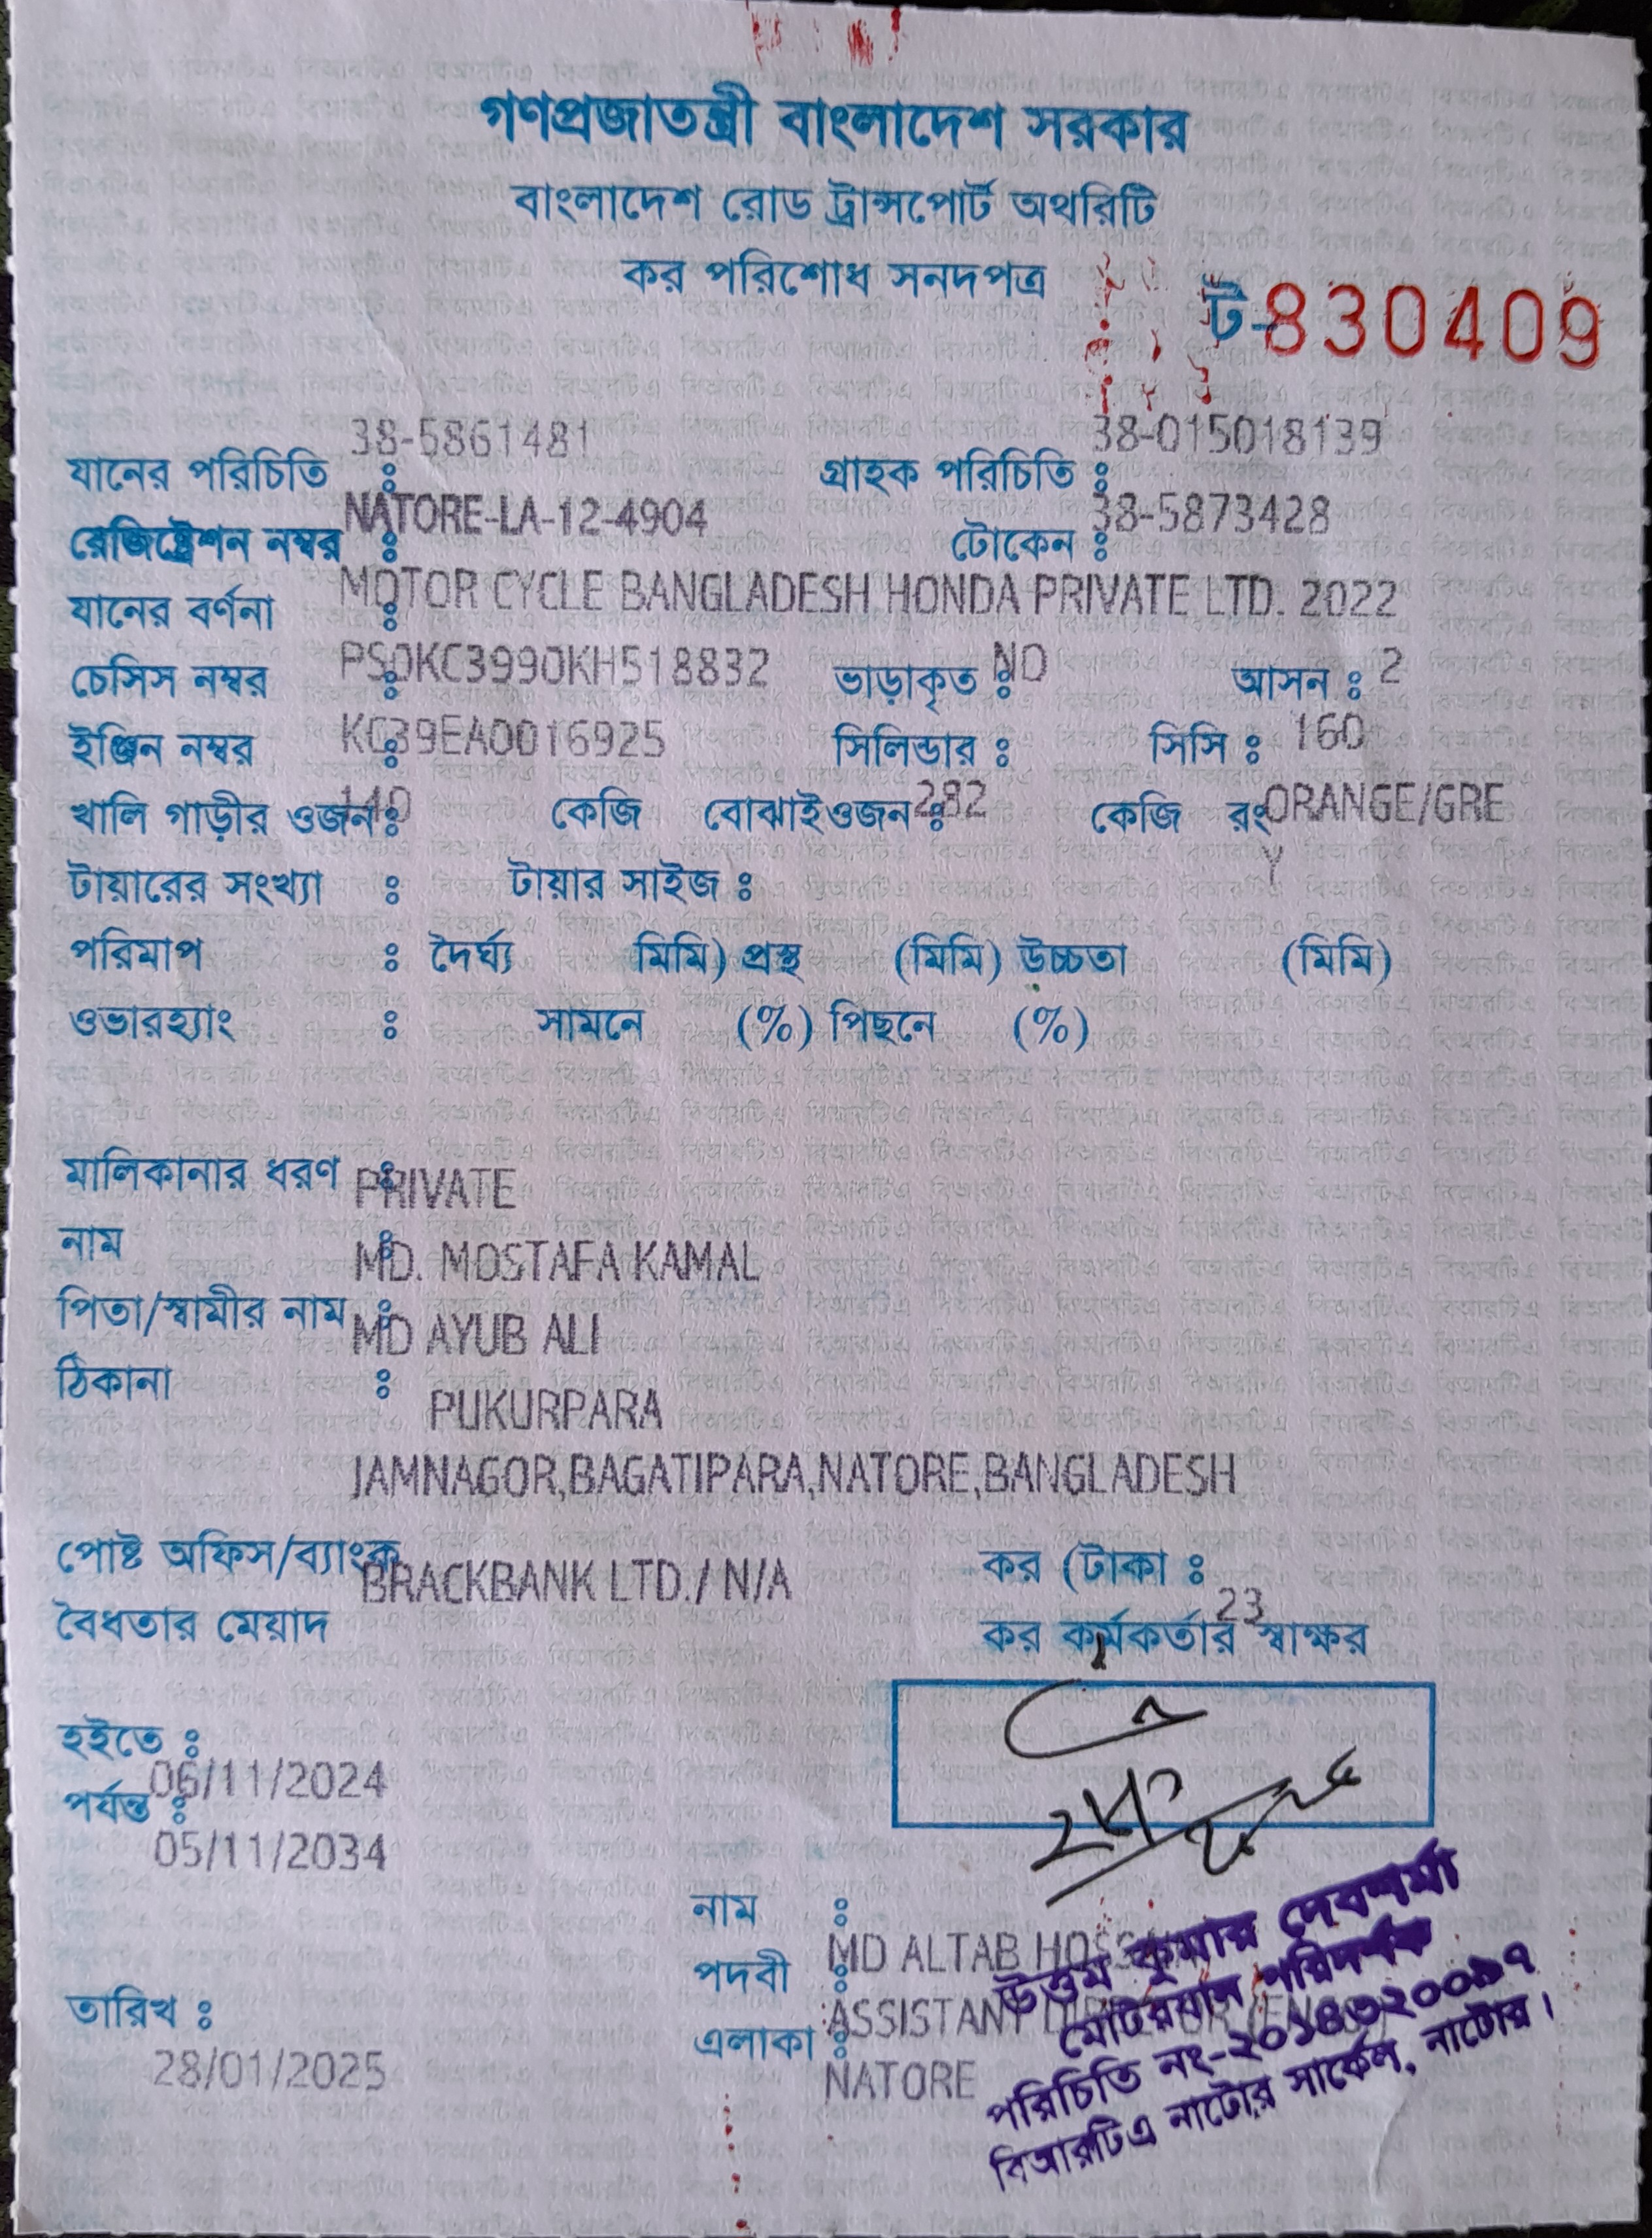 গণপ্রজাতন্ত্রী বাংলাদেশ সরকার
বাংলাদেশ রোড ট্রান্সপোর্ট অথরিটি
কর পরিশোধ সনদপত্র
ট-830409
যানের পরিচিতি : 38-5861481 গ্রাহক পরিচিতি : 38-015018139
রেজিষ্ট্রেশন নম্বর : NATORE-LA-12-4904 টোকেন : 38-5873428
যানের বর্ণনা : MOTOR CYCLE BANGLADESH HONDA PRIVATE LTD. 2022
চেসিস নম্বর : PS0KC3990KH518832 ভাড়াকৃত : NO আসন : 2
ইঞ্জিন নম্বর : KC39EA0016925 সিলিন্ডার : সিসি : 160
খালি গাড়ীর ওজন : 140 কেজি বোঝাইওজন : 282 কেজি রং ORANGE/GRE
Y
টায়ারের সংখ্যা : টায়ার সাইজ :
পরিমাপ : দৈর্ঘ্য মিমি) প্রস্থ (মিমি) উচ্চতা (মিমি)
ওভারহ্যাং : সামনে (%) পিছনে (%)
মালিকানার ধরণ : PRIVATE
নাম : MD. MOSTAFA KAMAL
পিতা/স্বামীর নাম : MD AYUB ALI
ঠিকানা : PUKURPARA
JAMNAGOR,BAGATIPARA,NATORE,BANGLADESH
পোষ্ট অফিস/ব্যাংক BRACKBANK LTD./ N/A কর (টাকা : 23
বৈধতার মেয়াদ কর কর্মকর্তার স্বাক্ষর
হইতে : 06/11/2024
পর্যন্ত : 05/11/2034
নাম : MD ALTAB HOSSAIN
পদবী : ASSISTANT DIRECTOR (ENGG)
এলাকা : NATORE
তারিখ : 28/01/2025
উত্তম কুমার দেবশর্মা
মোটরযান পরিদর্শক
পরিচিতি নং-২০১৪৩২০০৯৭
বিআরটিএ নাটোর সার্কেল, নাটোর।